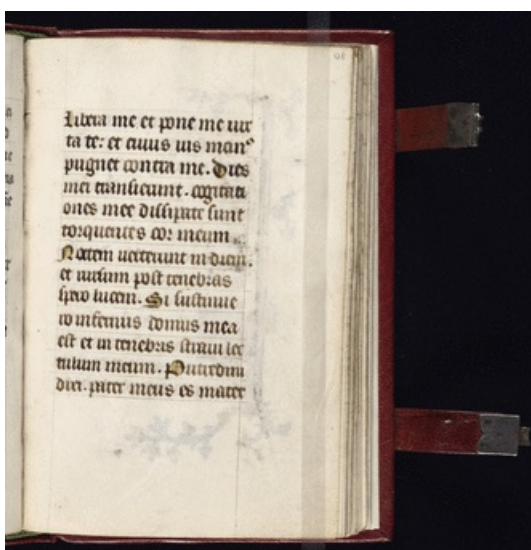 Libera me et pone me iux
ta te: et cuius uis man⁹
pugnet contra me. Dies
mei transierunt. cogitati
ones mee dissipate sunt
torquentes cor meum.
Noctem uerterunt in diem.
et rursum post tenebras
spero lucem. Si sustinue
ro infernus domus mea
est et in tenebris straui lec
tulum meum. Putredini
dixi. pater meus es mater